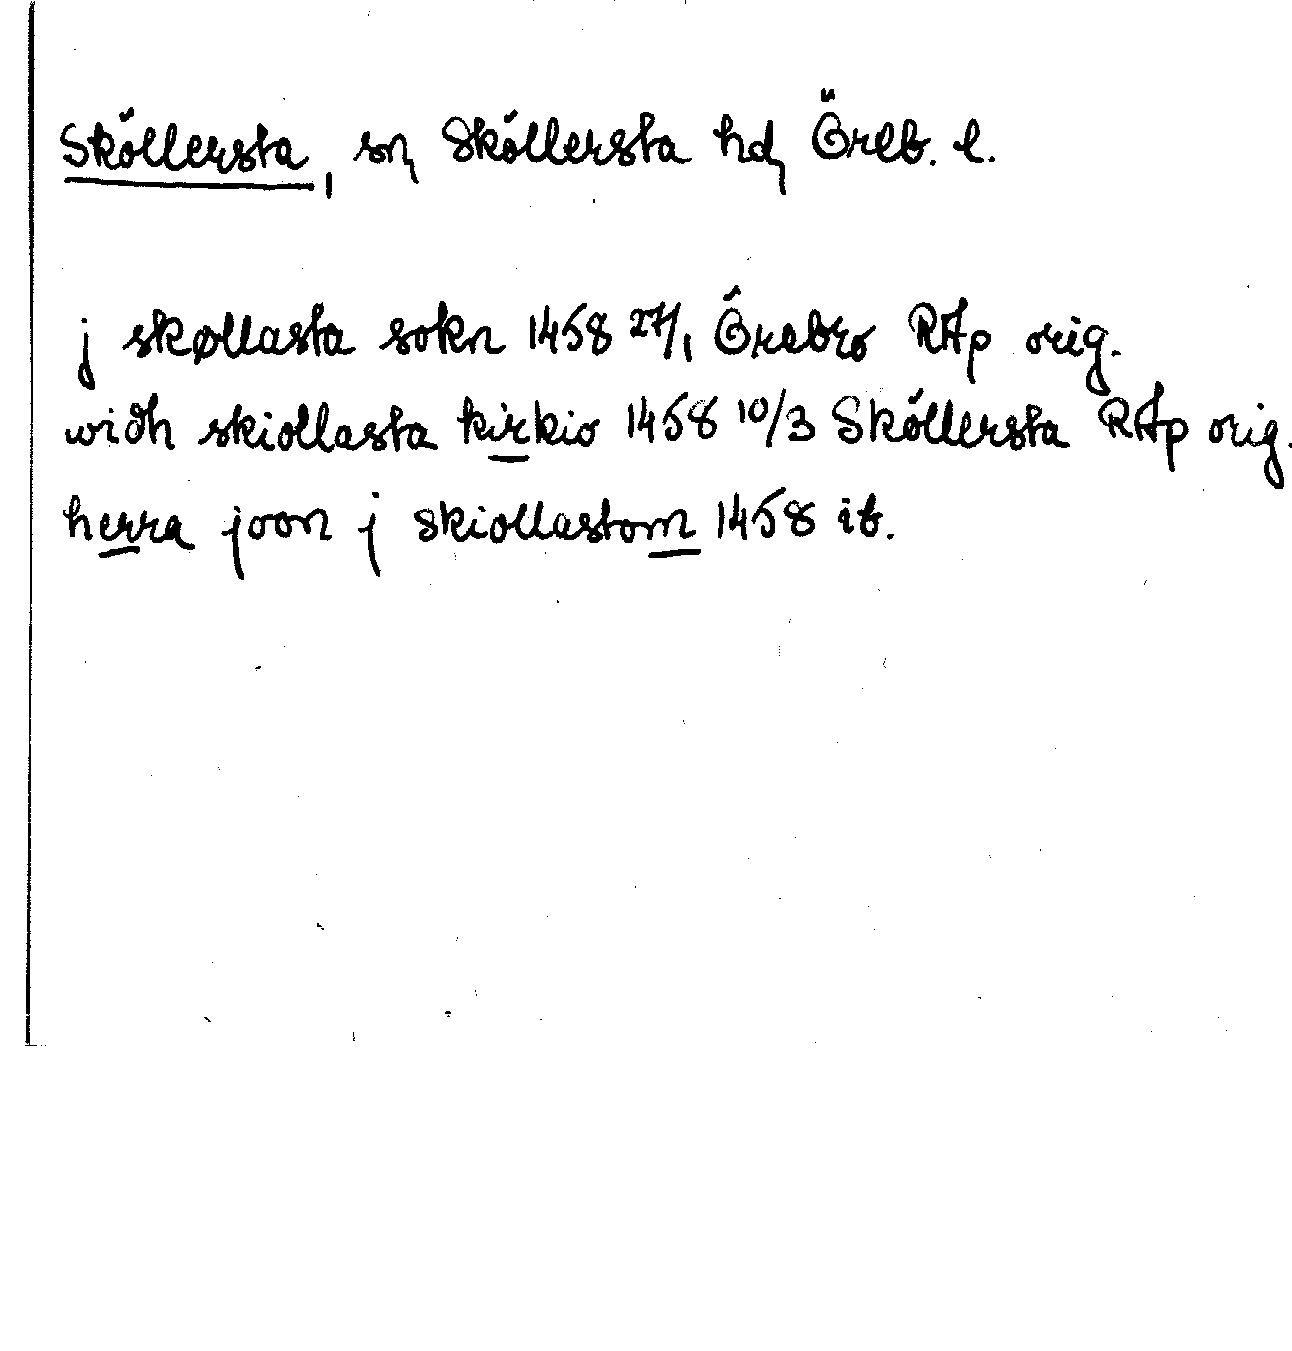 Sköllersta, sn, Sköllersta hd, Öreb. l.
j skøllasta sokn 1458 27/1 Örebro RAp orig.
widh skiollasta kirkio 1458 10/3 Sköllersta RAp orig.
herra joon j skiollastom 1458 ib.